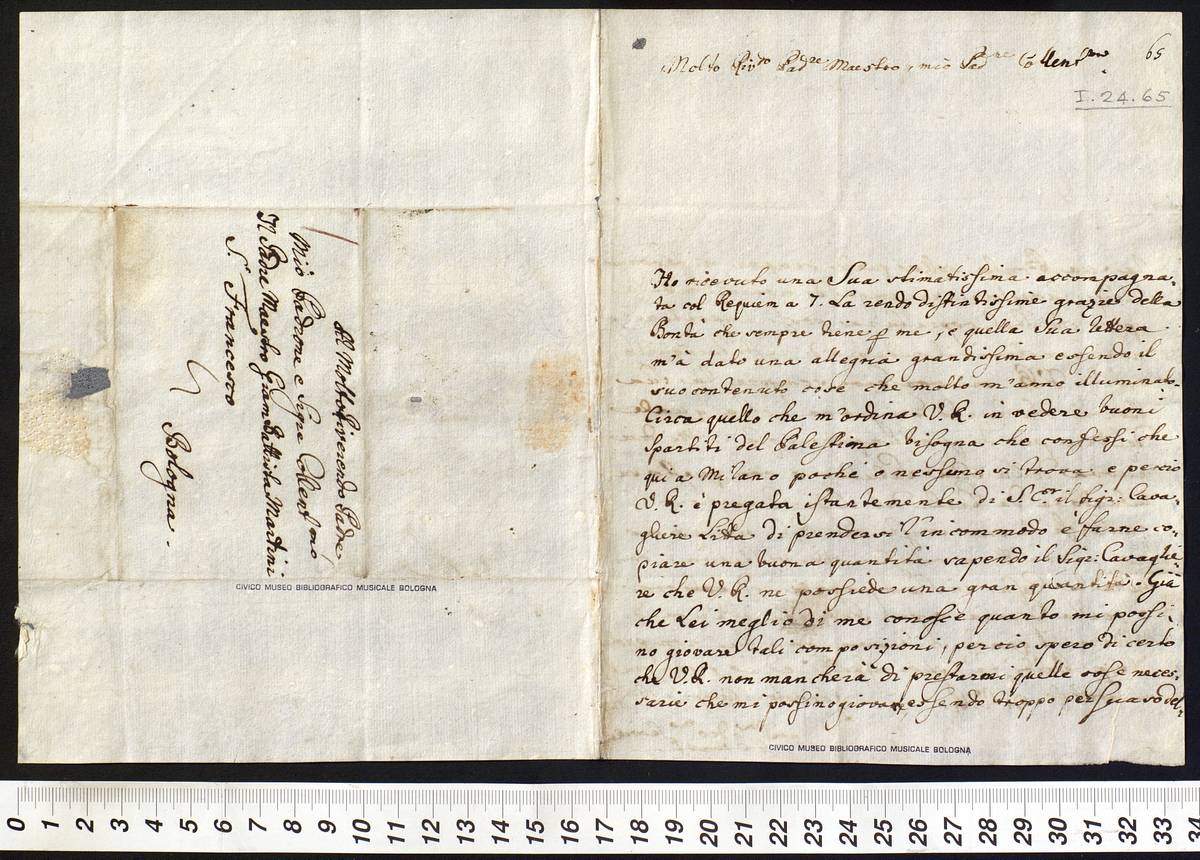 65
Molto Rivdo Padre Maestro, mio Padre Collendmo
I. 24. 65
Ho ricevuto una Sua stimatissima accompagna-
ta col Requiem a 7. La rendo distintissime grazie della
Bontà che sempre tiene p me, e quella Sua lettera
m'à dato una allegria grandissima essendo il
suo contenuto cose che molto m'anno illuminato.
Circa quello che m'ordina V. R. in vedere buoni
Spartiti del Palestrina bisogna che confessi che
qui a Milano pochi o nessuno si trova e percio
V. R. è pregata istantemente di S. Cza il Sigr: Cava-
gliere Litta di prendersi l'incommodo è farne co-
piare una buona quantità sapendo il Sigr: Cavaglie-
re che V. R. ne possiede una gran quantità. Già
che Lei meglio di me conosce quanto mi possi-
no giovare tali composizioni, percio spero di certo
che V. R. non mancherà di prestarmi quelle cose neces-
sarie che mi possino giovare, essendo troppo persuaso del-
CIVICO MUSEO BIBLIOGRAFICO MUSICALE BOLOGNA
Al Molto Riverendo Padre
Mio Padrone e Sigre Collendmo
Il Padre Maestro Giambattista Martini
S. Francesco
Bologna.
CIVICO MUSEO BIBLIOGRAFICO MUSICALE BOLOGNA
0 1 2 3 4 5 6 7 8 9 10 11 12 13 14 15 16 17 18 19 20 21 22 23 24 25 26 27 28 29 30 31 32 33 34